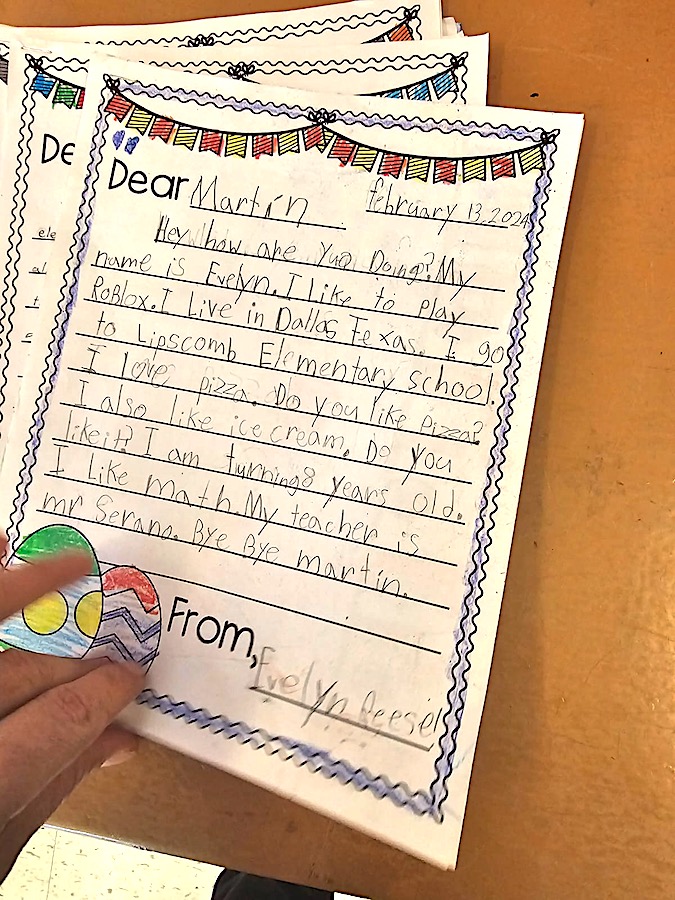 De
ele
al
t
e
Dear Martín
february 13, 2024
Hey how are yuo Doing? My
name is Evelyn. I like to play
RoBlox. I Live in Dallas Texas. I go
to Lipscomb Elementary school.
I love pizza. Do you like pizza?
I also like ice cream. Do you
like it? I am turning 8 years old.
I Like math. My teacher is
mr Serano. Bye Bye martin.
From,
Evelyn Reesel